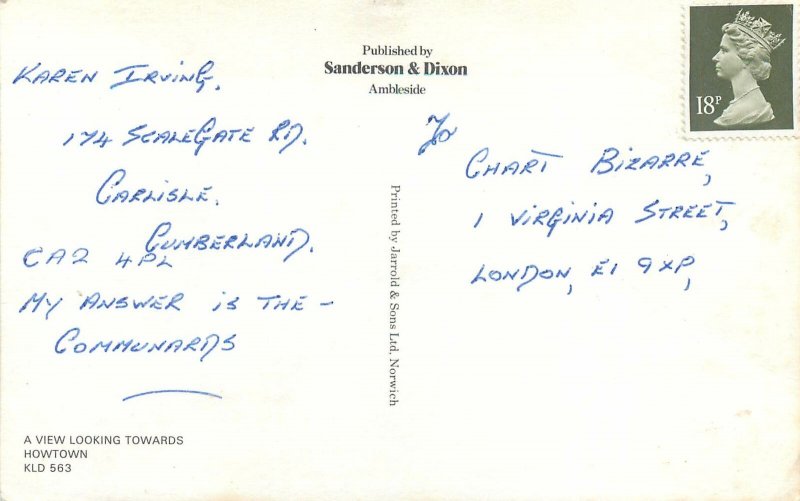 Published by
Sanderson & Dixon
Ambleside
18P
KAREN IRVING,
174 SCALEGATE RD.
CARLISLE.
CUMBERLAND.
CA2 4PL
MY ANSWER IS THE –
COMMUNARDS
To
CHART BIZARRE,
1 VIRGINIA STREET,
LONDON, E1 9XP,
Printed by Jarrold & Sons Ltd, Norwich
A VIEW LOOKING TOWARDS
HOWTOWN
KLD 563